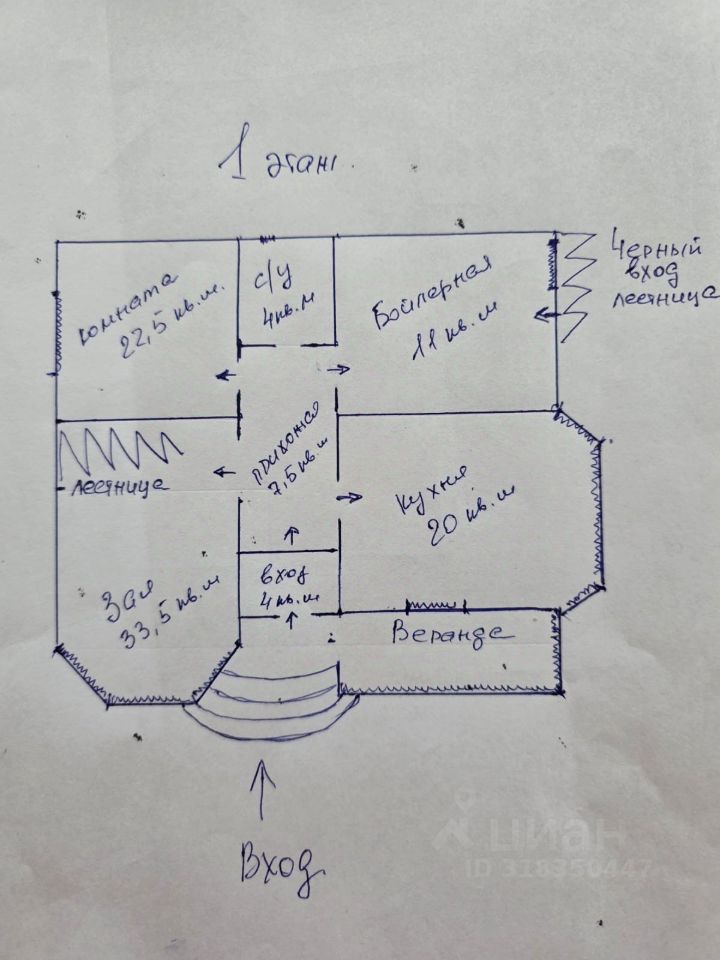 1 этаж
Черный
вход
лестница
комната
22,5 кв.м.
с/у
4кв.м
Бойлерная
11 кв.м
прихожая
7,5кв.м
лестница
Кухня
20 кв.м
Зал
33,5кв.м
вход
4кв.м
Веранда
Вход
циан
ID 318350447